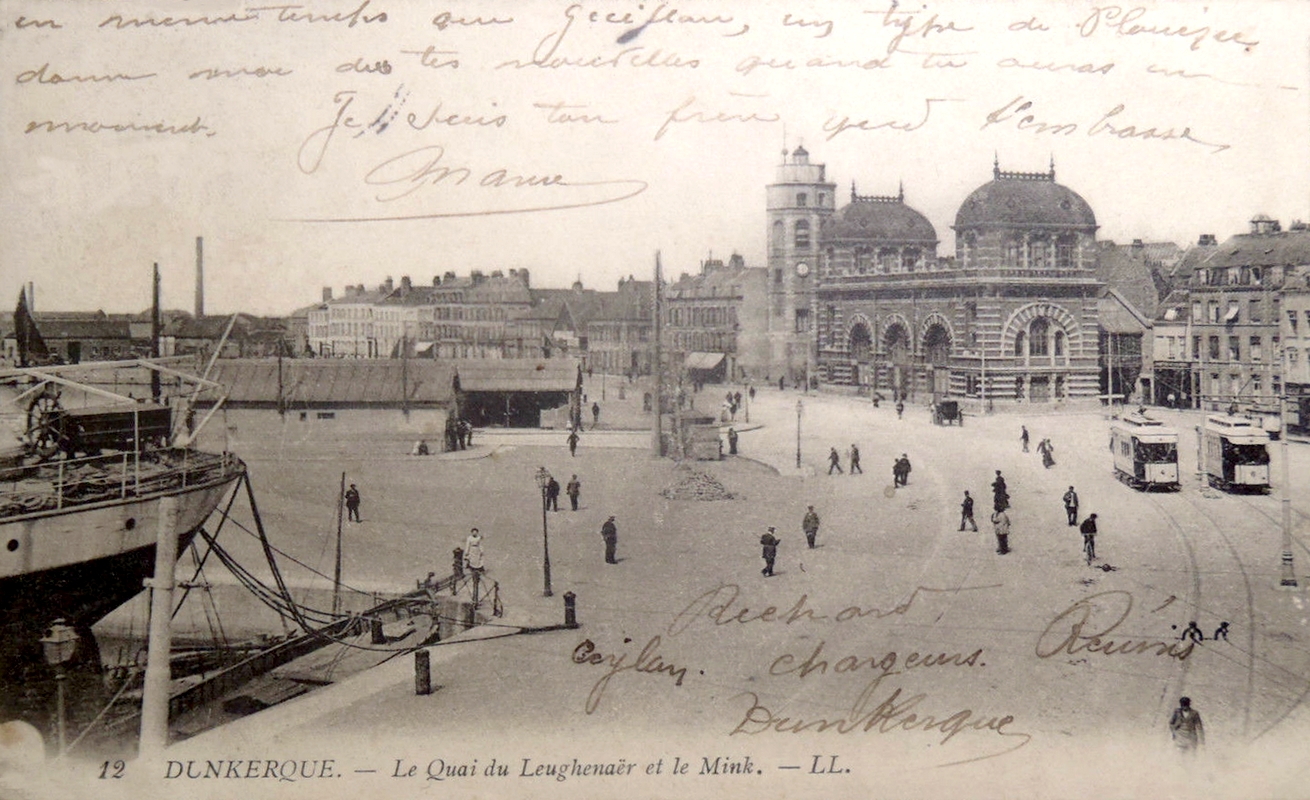 en meme temps que Geeijlan, un type de Plouezec.
donne moi des tes nouvelles quand tu auras un
moment. Je suis ton frère qui t'embrasse
Richard
Ceijlan. chargeurs. Réunis
Dunkerque
12 DUNKERQUE. — Le Quai du Leughenaër et le Mink. — LL.